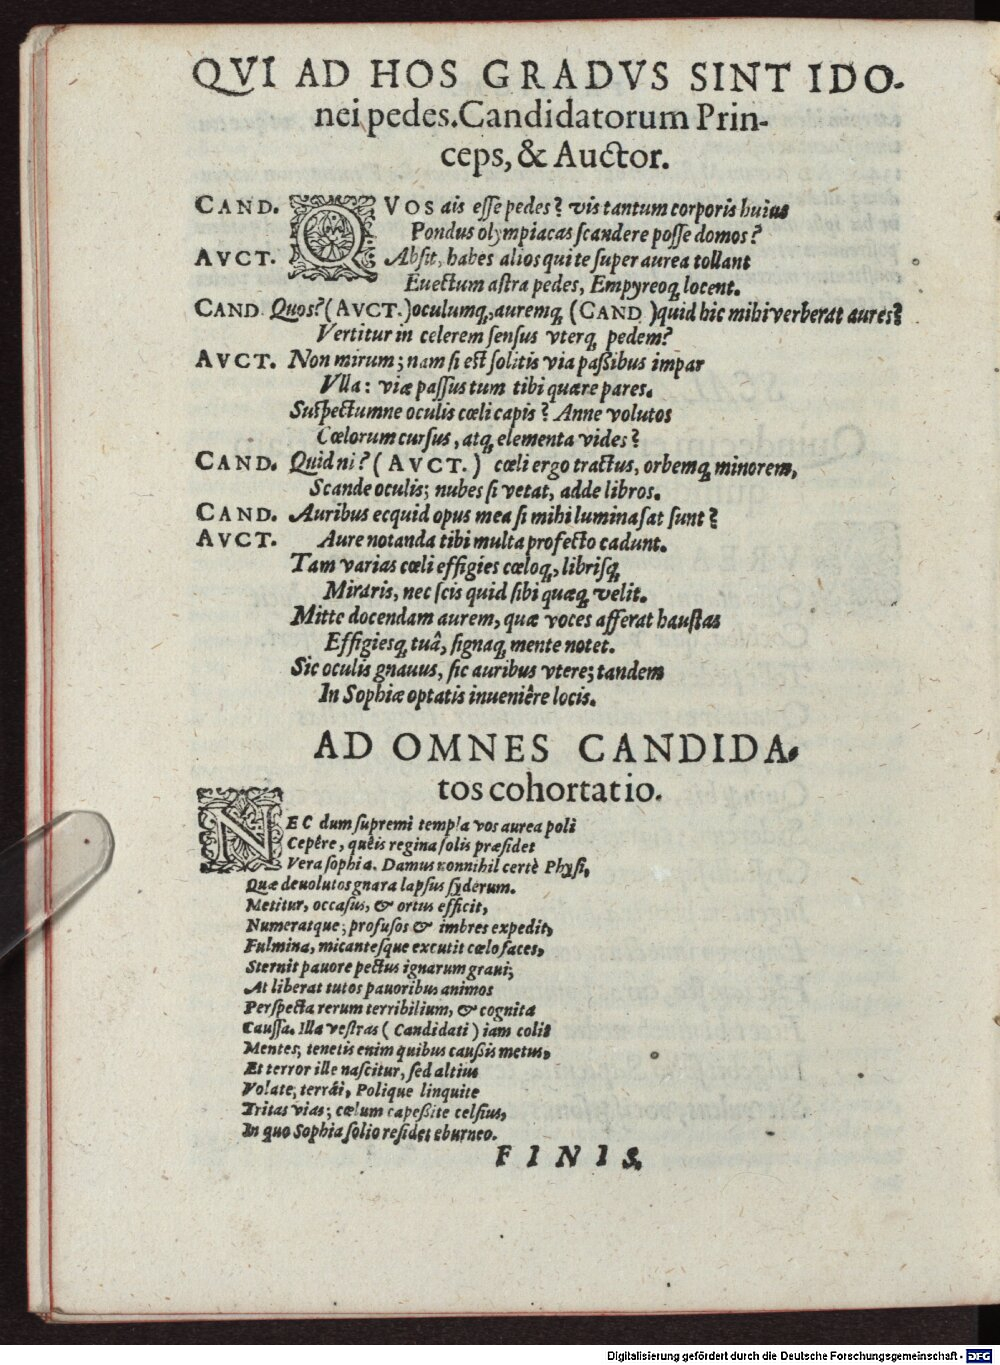 QVI AD HOS GRADVS SINT IDO-
nei pedes. Candidatorum Prin-
ceps, & Auctor.
CAND. QVOS ais esse pedes? vis tantum corporis huius
Pondus olympiacas scandere posse domos?
AVCT. Absit, habes alios qui te super aurea tollant
Euectum astra pedes, Empyreoq; locent.
CAND. Quos? (AVCT.) oculumq;, auremq; (CAND.) quid hic mihi verberat aures?
Vertitur in celerem sensus vterq; pedem?
AVCT. Non mirum; nam si est solitis via paßibus impar
Vlla: viæ passus tum tibi quære pares.
Suspectumne oculis cœli capis? Anne volutos
Cœlorum cursus, atq; elementa vides?
CAND. Quid ni? (AVCT.) cœli ergo tractus, orbemq; minorem,
Scande oculis; nubes si vetat, adde libros.
CAND. Auribus ecquid opus mea si mihi lumina sat sunt?
AVCT. Aure notanda tibi multa profecto cadunt.
Tam varias cœli effigies cœloq;, librisq;
Miraris, nec scis quid sibi quæq; velit.
Mitte docendam aurem, quæ voces afferat haustas
Effigiesq; tuâ, signaq; mente notet.
Sic oculis gnauus, sic auribus vtere; tandem
In Sophiæ optatis inueniêre locis.
AD OMNES CANDIDA-
tos cohortatio.
NEC dum supremi templa vos aurea poli
Cepêre, quêis regina solis præsidet
Vera sophia. Damus nonnihil certè Physi,
Quæ deuolutos gnara lapsus syderum.
Metitur, occasus, & ortus efficit,
Numeratque; profusos & imbres expedit,
Fulmina, micantesque excutit cœlo faces,
Sternit pauore pectus ignarum graui;
At liberat tutos pauoribus animos
Perspecta rerum terribilium, & cognita
Caussa. Illa vestras (Candidati) iam colit
Mentes; tenetis enim quibus caußis metus,
Et terror ille nascitur, sed altius
Volate, terrâi, Polique linquite
Tritas vias; cœlum capeßite celsius,
In quo Sophia solio residet eburneo.
FINIS.
Digitalisierung gefördert durch die Deutsche Forschungsgemeinschaft - DFG